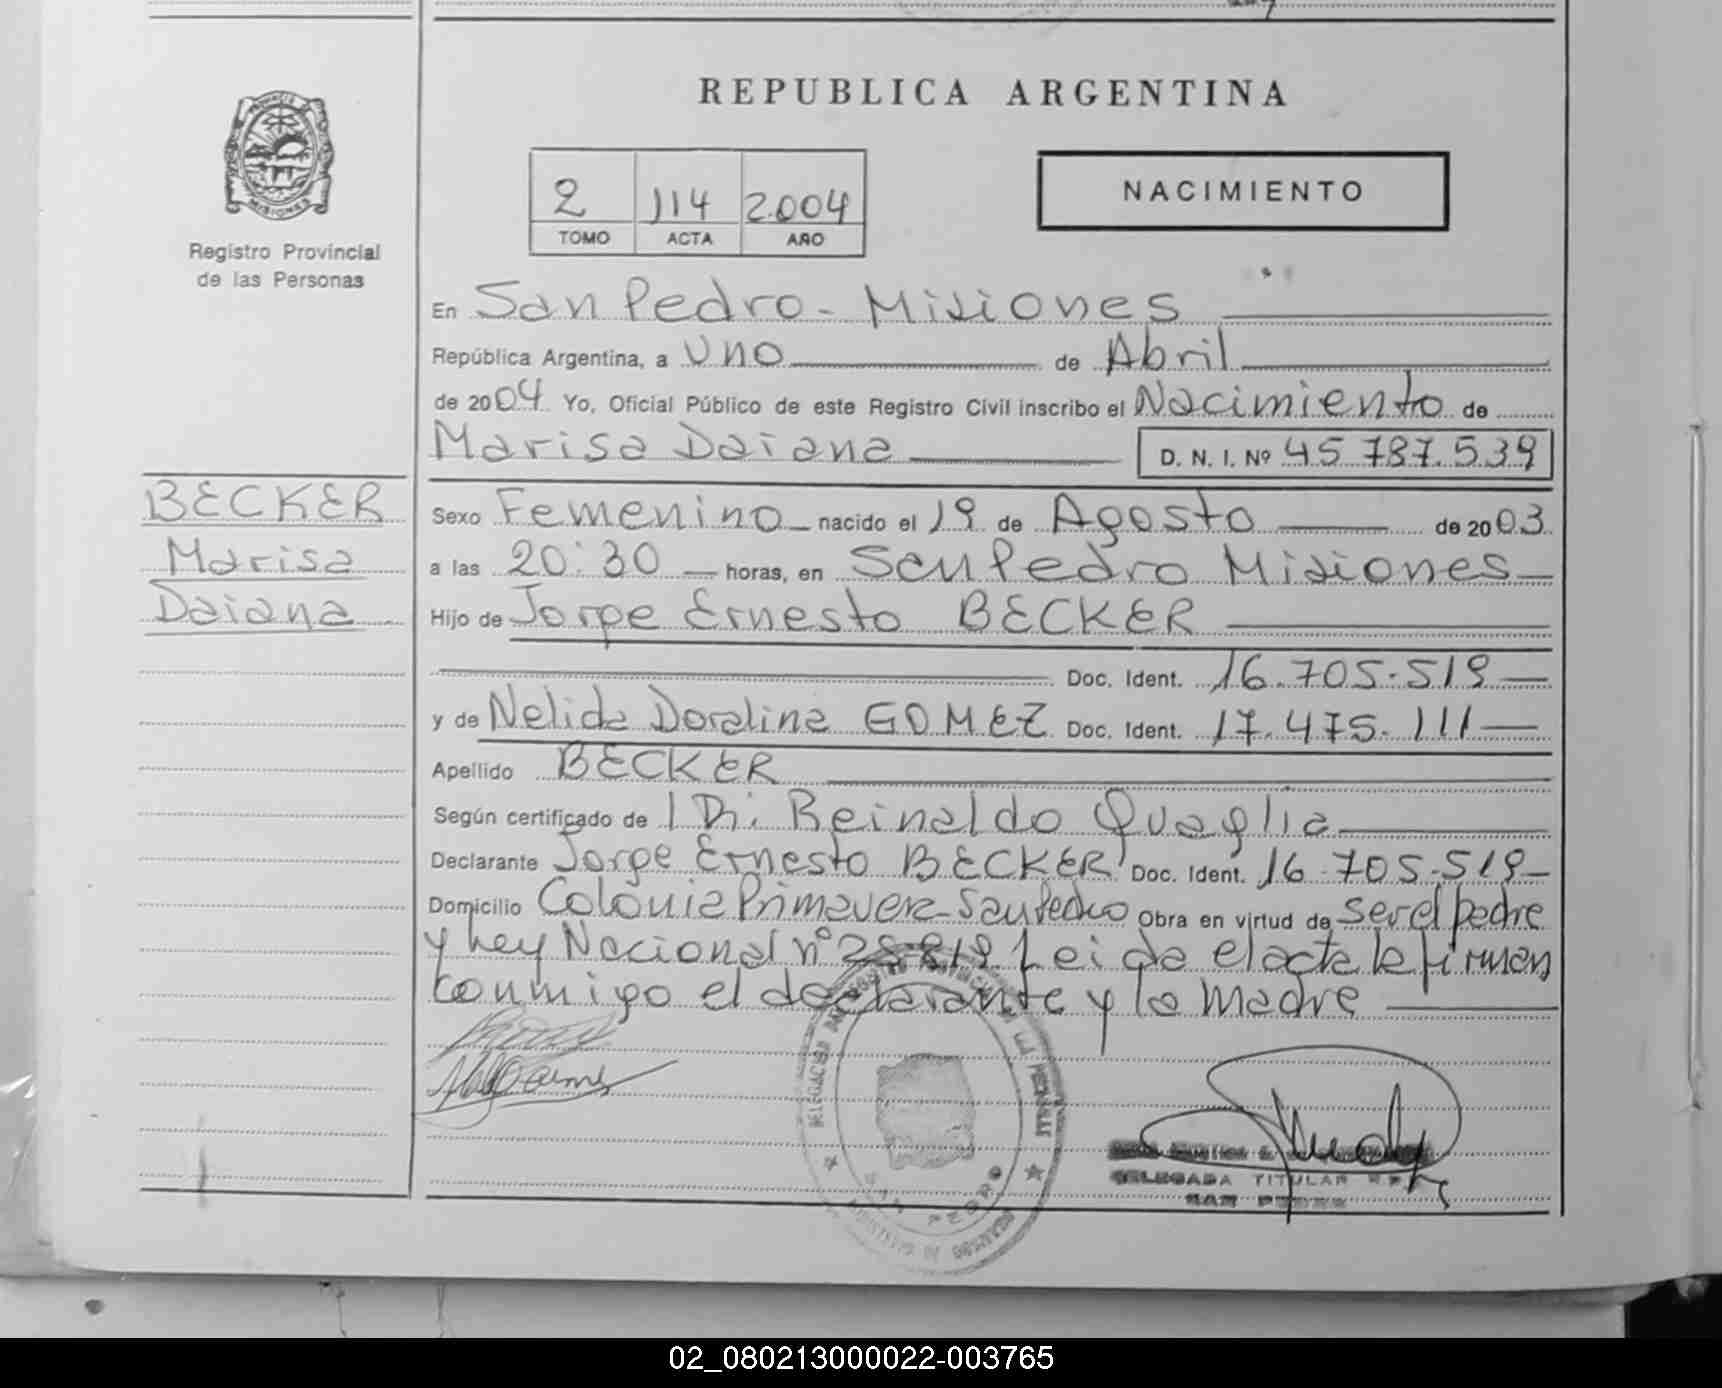 REPUBLICA ARGENTINA
PROVINCIA DE
MISIONES
Registro Provincial
de las Personas
2 114 2.004
TOMO ACTA AÑO
NACIMIENTO
En San Pedro - Misiones
República Argentina, a Uno de Abril
de 2004 Yo, Oficial Público de este Registro Civil inscribo el Nacimiento de
Marisa Daiana D. N. I. Nº 45.787.539
BECKER
Marisa
Daiana
Sexo Femenino nacido el 19 de Agosto de 2003
a las 20:30 horas, en San Pedro Misiones
Hijo de Jorge Ernesto BECKER
Doc. Ident. 16.705.519
y de Nelida Doralina GOMEZ Doc. Ident. 17.475.111
Apellido BECKER
Según certificado de Reinaldo Quaglia
Declarante Jorge Ernesto BECKER Doc. Ident. 16.705.519
Domicilio Colonia Primavera - San Pedro Obra en virtud de ser el padre
y Ley Nacional nº Leida el acta la firman
conmigo el declarante y la madre
DELEGADA TITULAR
SAN PEDRO
SAN PEDRO
02_080213000022-003765